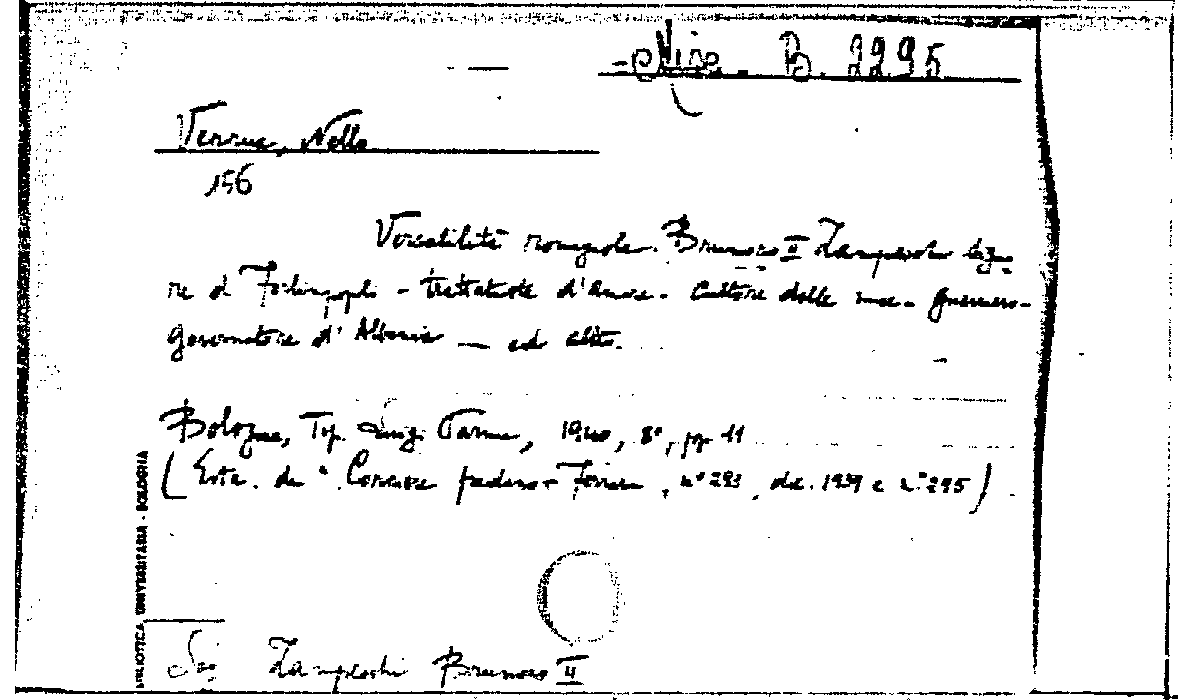 Misc. B. 2295
Verrua, Nello
156
Versatilità romagnola. Brunoro II Zampeschi
re di Forlimpopoli - trattatista d'amore - Cultore delle muse - guerriero -
governatore d'Albania — ed altro.
Bologna, Tip. Luigi Parma, 1940, 8°, pp. 11
(Estr. da "Corriere padano - Ferrara, n° 293, dic. 1939 e n° 295)
BIBLIOTECA UNIVERSITARIA - BOLOGNA
Zampeschi Brunoro II